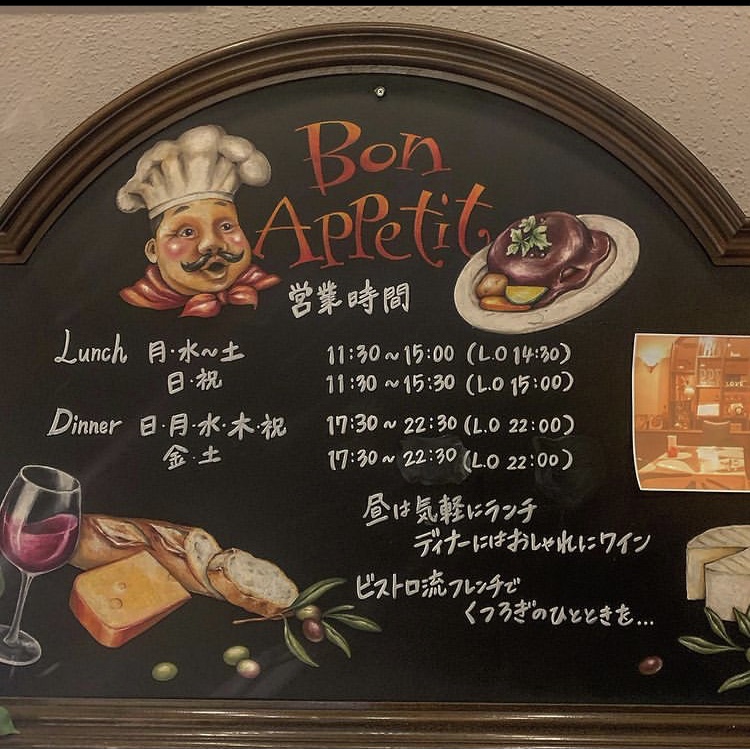 Bon
Appetit
営業時間
Lunch 月・水～土 11:30～15:00 (L.O 14:30)
日・祝 11:30～15:30 (L.O 15:00)
Dinner 日・月・水・木・祝 17:30～22:30 (L.O 22:00)
金・土 17:30～22:30 (L.O 22:00)
昼は気軽にランチ
ディナーにはおしゃれにワイン
ビストロ流フレンチで
くつろぎのひとときを...